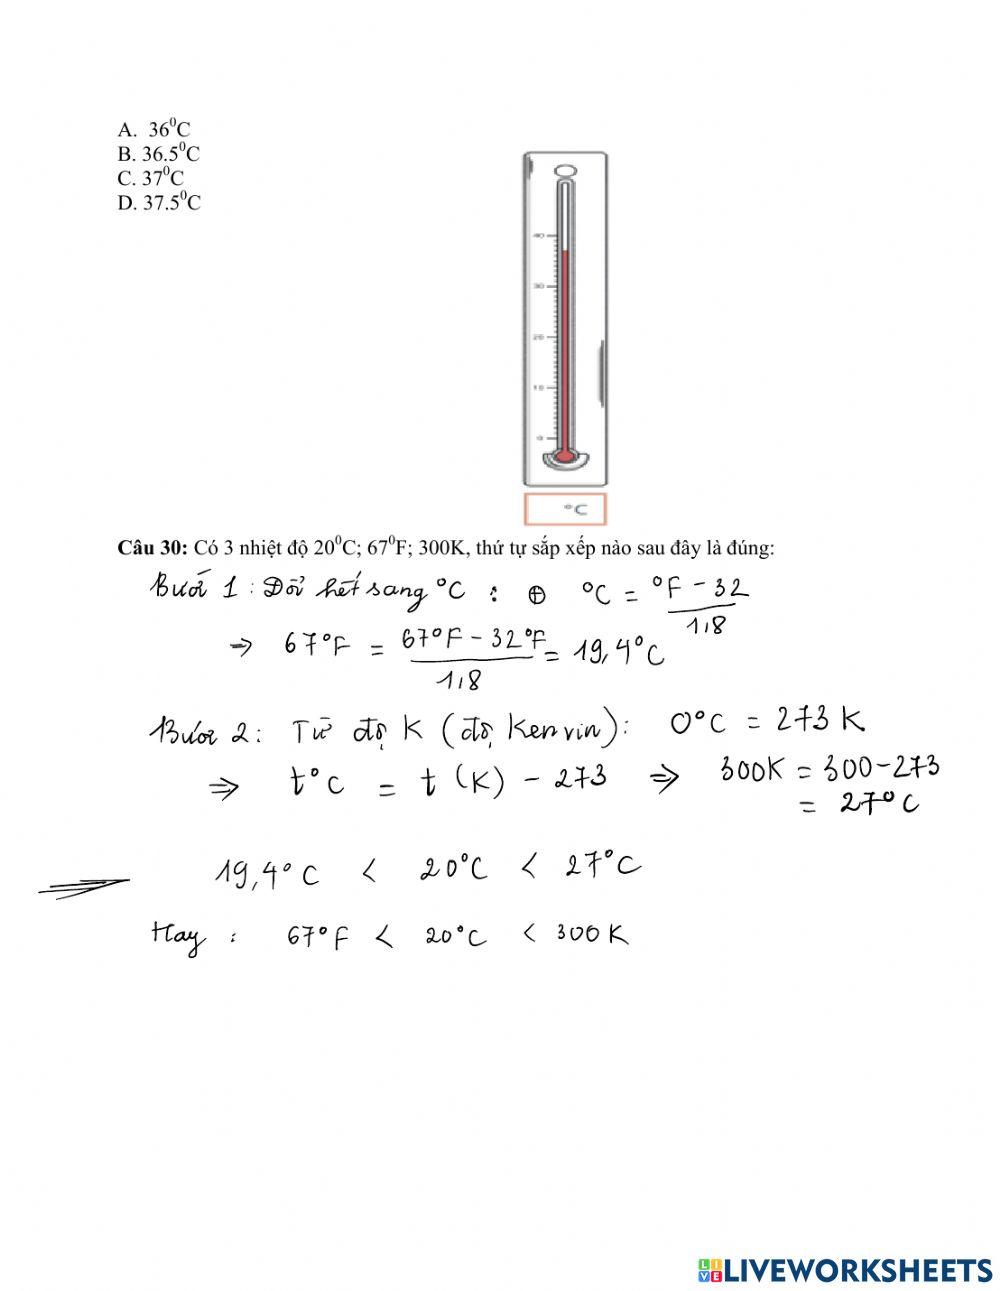 A. 36⁰C
B. 36.5⁰C
C. 37⁰C
D. 37.5⁰C
40
30
20
10
0
°C
Câu 30: Có 3 nhiệt độ 20⁰C; 67⁰F; 300K, thứ tự sắp xếp nào sau đây là đúng:
Bước 1: Đổi hết sang °C : ⊕ °C = °F - 32 / 1,8
→ 67°F = 67°F - 32°F / 1,8 = 19,4°C
Bước 2: Từ độ K (độ Kenvin): 0°C = 273 K
⇒ t°C = t (K) - 273 ⇒ 300K = 300-273
= 27°C
19,4°C < 20°C < 27°C
Hay : 67°F < 20°C < 300K
LIVEWORKSHEETS